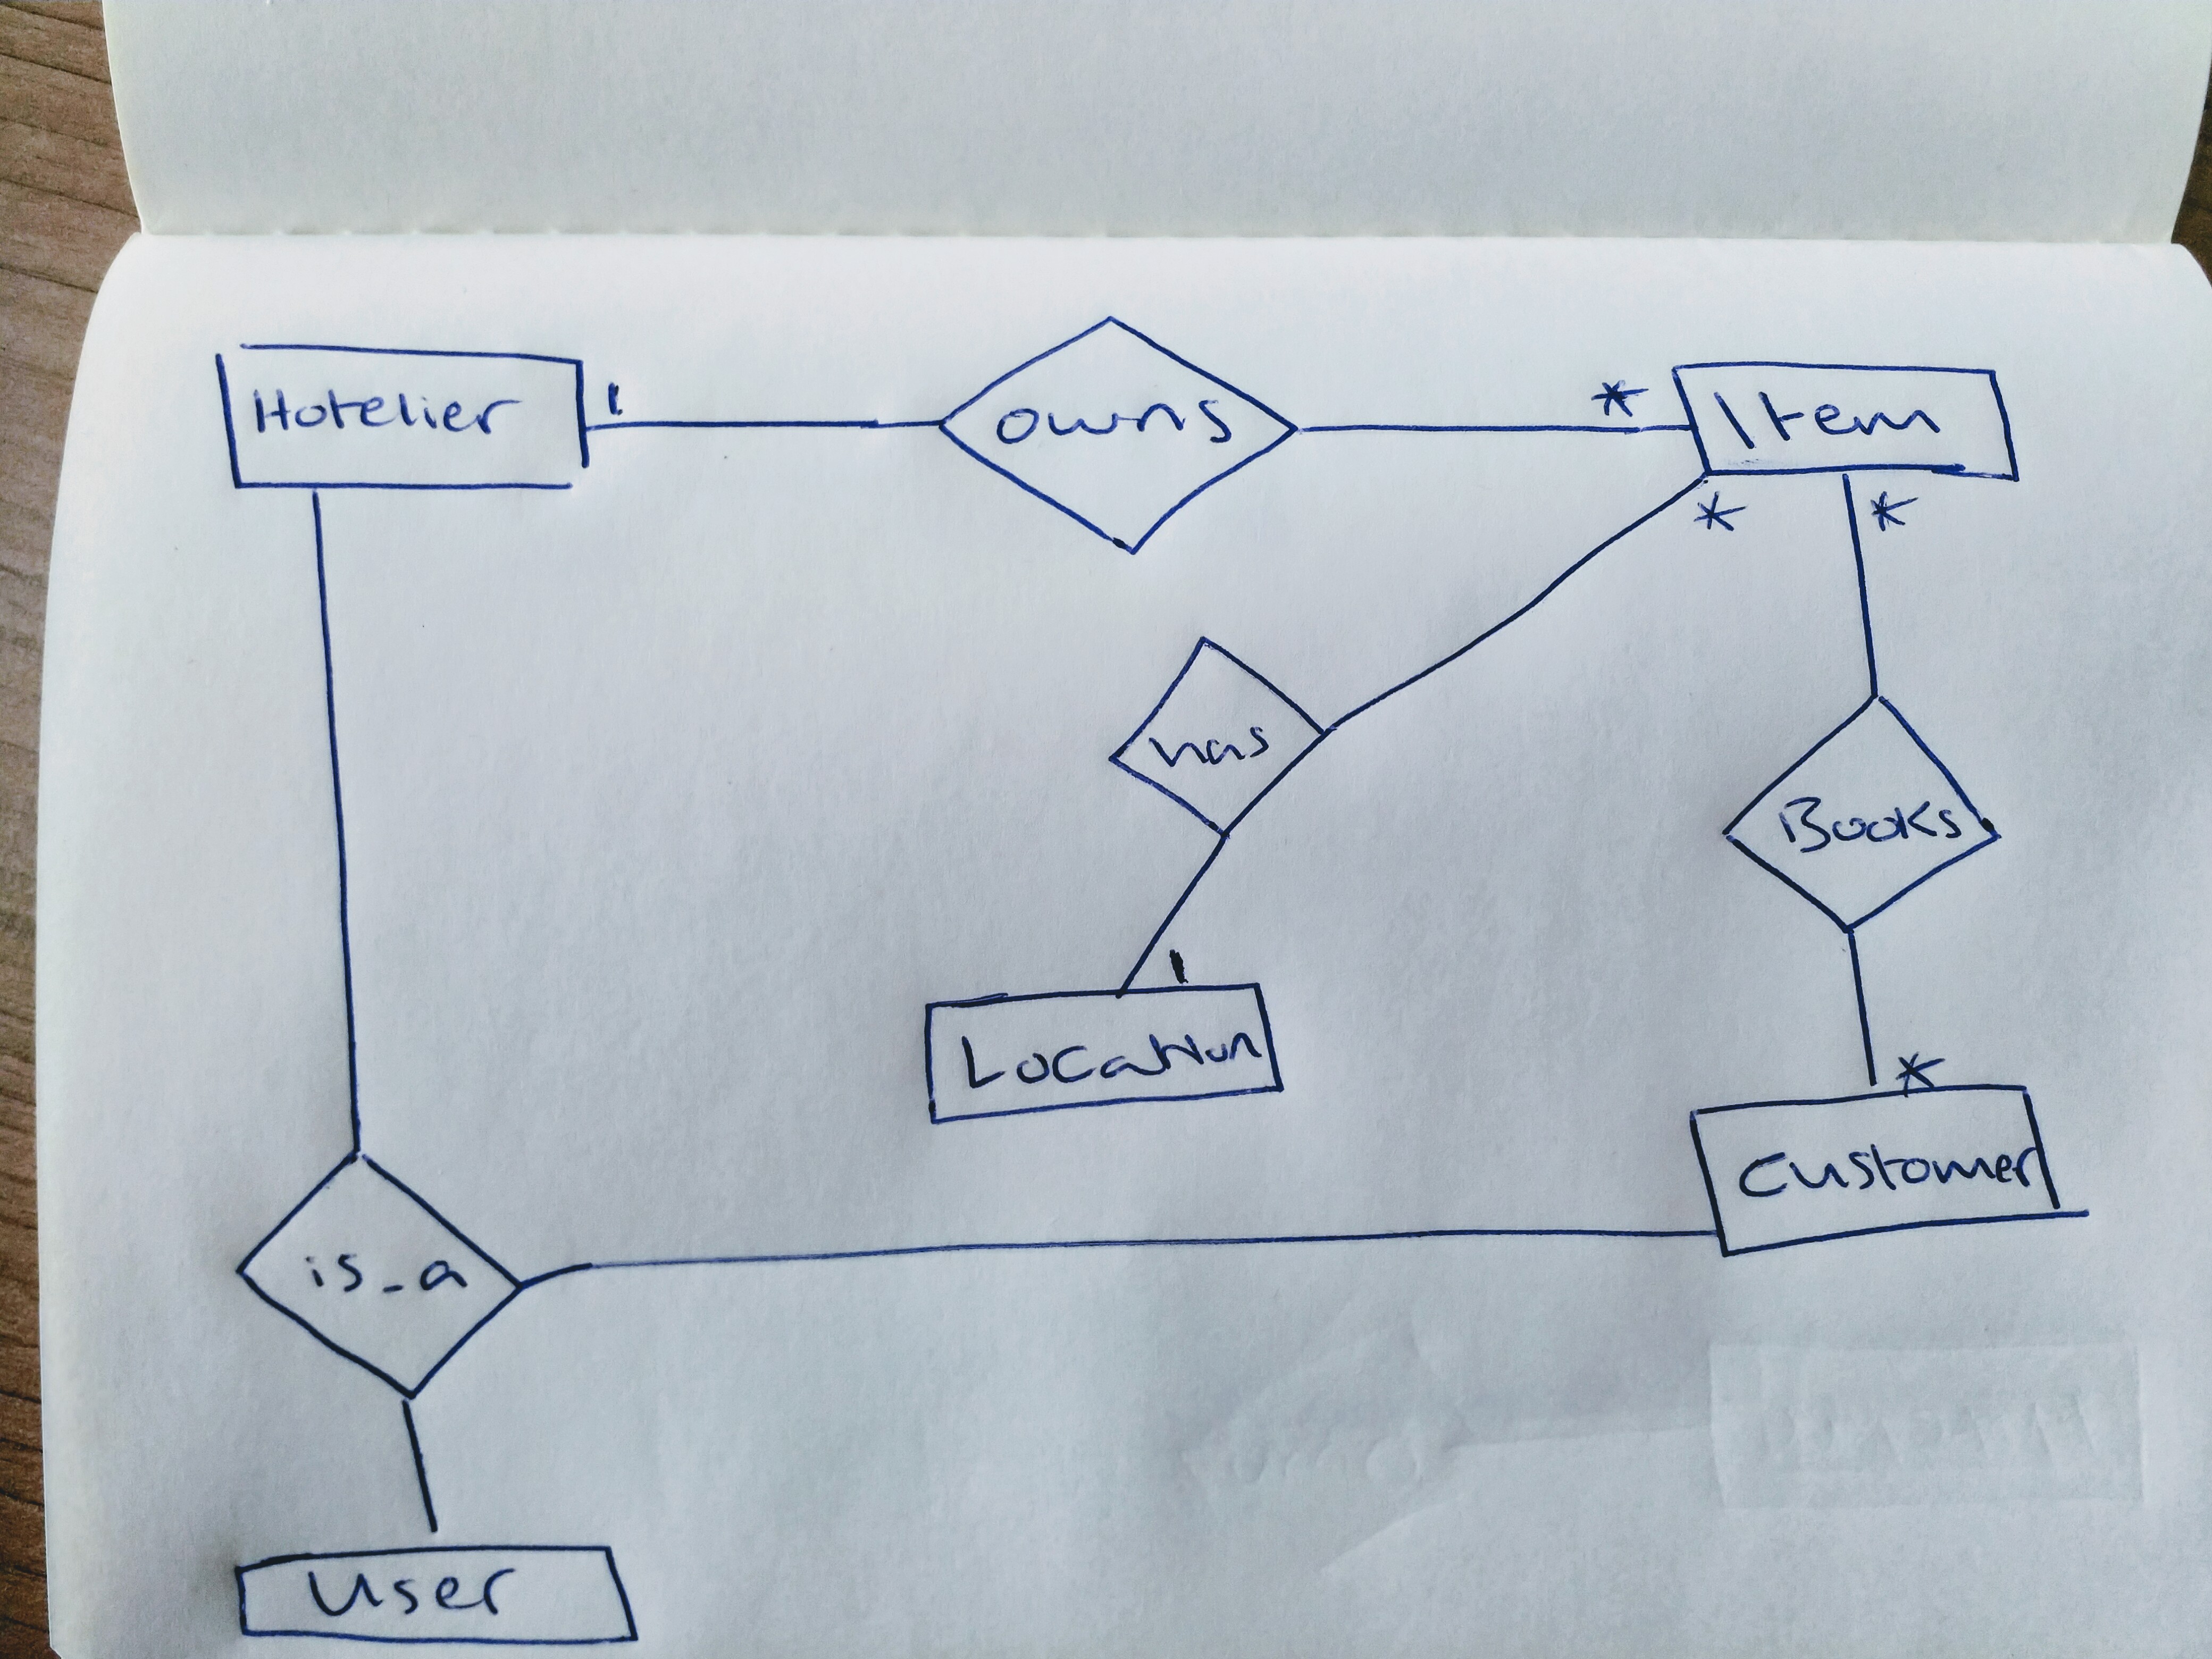 Hotelier
1
owns
*
Item
*
*
has
Books
1
Location
*
Customer
is_a
User